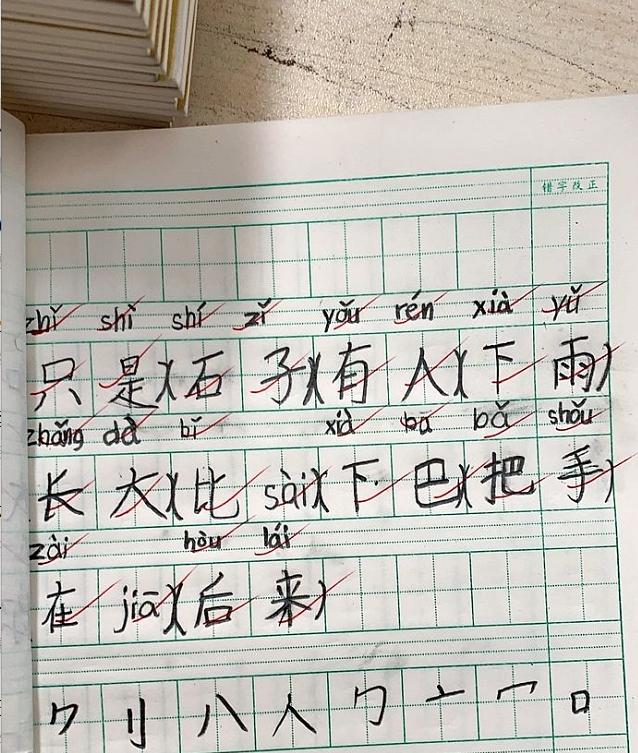 错字改正
zhǐ shì shí zǐ yǒu rén xià yǔ
只是)(石子)(有人)(下雨)
zhǎng dà bǐ xià ba bǎ shǒu
长大)(比sài)(下巴)(把手)
zài hòu lái
在jiā)(后来)
⺈ 刂 八 人 勹 亠 冖 口